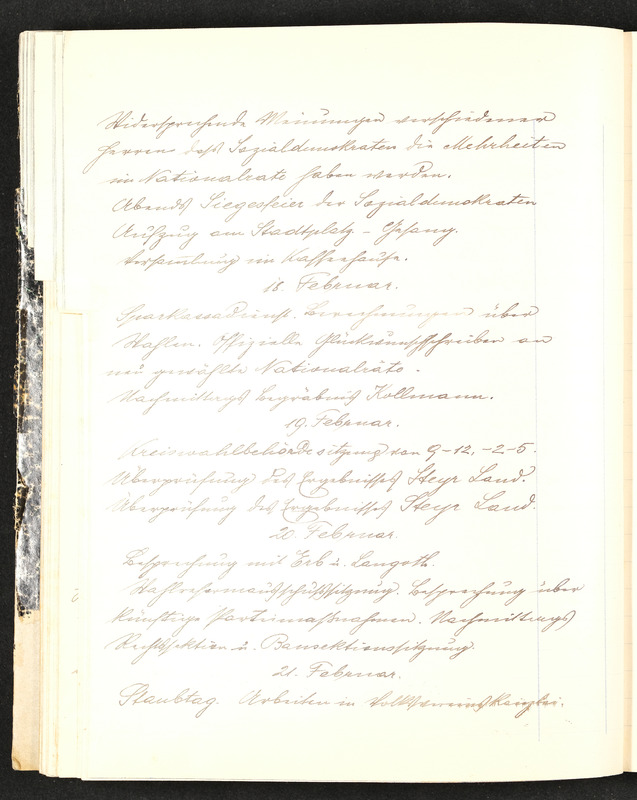 Widersprechende Meinungen verschiedener
Herren daß Sozialdemokraten die Mehrheiten
im Nationalrate haben werden.
Abends Siegesfeier der Sozialdemokraten
Aufzug am Stadtplatz – Gesang.
Versammlung im Kaffeehause.
18. Februar.
Sparkassadienst. Berechnungen über
Wahlen. Offizielle Glückwunschschreiben an
neu gewählte Nationalräte.
Nachmittags Begräbnis Kollmann.
19. Februar.
Kreiswahlbehördesitzung von 9–12, –2–5.
Überprüfung des Ergebnisses Steyr Land.
Überprüfung des Ergebnisses Steyr Land.
20. Februar.
Besprechung mit Erb u. Langoth.
Wahlreformausschußsitzung. Besprechung über
künftige Parteimaßnahmen. Nachmittags
Rechtssektion u. Bausektionssitzung.
21. Februar.
Staubtag. Arbeiten in Volksvereinskanzlei.